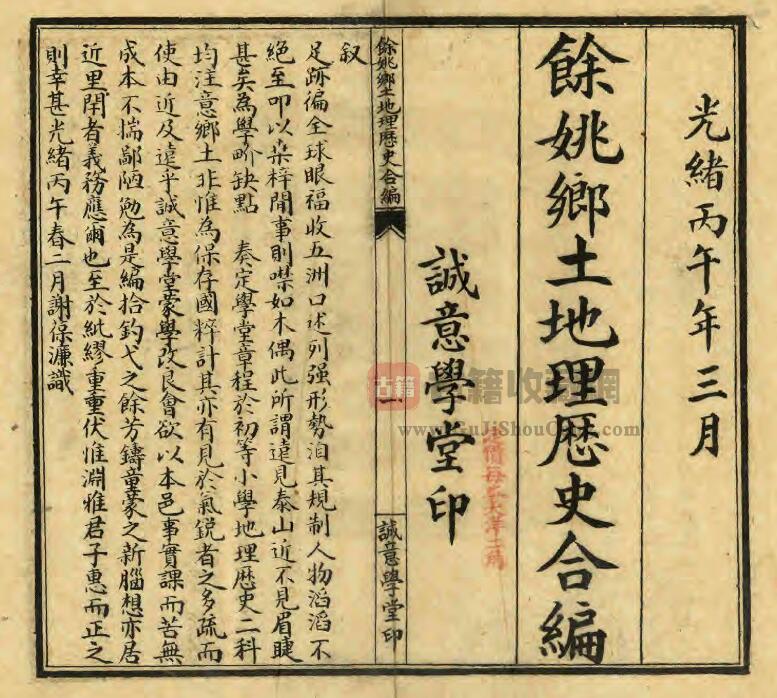 光緒丙午年三月
餘姚鄉土地理歷史合編
誠意學堂印
餘姚鄉土地理歷史合編
一
誠意學堂印
叙
足跡徧全球眼福收五洲口述列强形勢洎其規制人物滔滔不
絕至叩以桑梓閒事則噤如木偶此所謂遠見泰山近不見眉睫
甚矣為學畍缺點 奏定學堂章程於初等小學地理歷史二科
均注意鄉土非惟為保存國粹計其亦有見於氣銳者之多疏而
使由近及遠乎誠意學堂蒙學改良會欲以本邑事實課而苦無
成本不揣鄙陋勉為是編拾釣弋之餘芳鑄童蒙之新腦想亦居
近里閈者義務應爾也至於紕繆重重伏惟淵雅君子惠而正之
則幸甚光緒丙午春二月謝葆濂識
古籍
www.GuJiShouCang.com